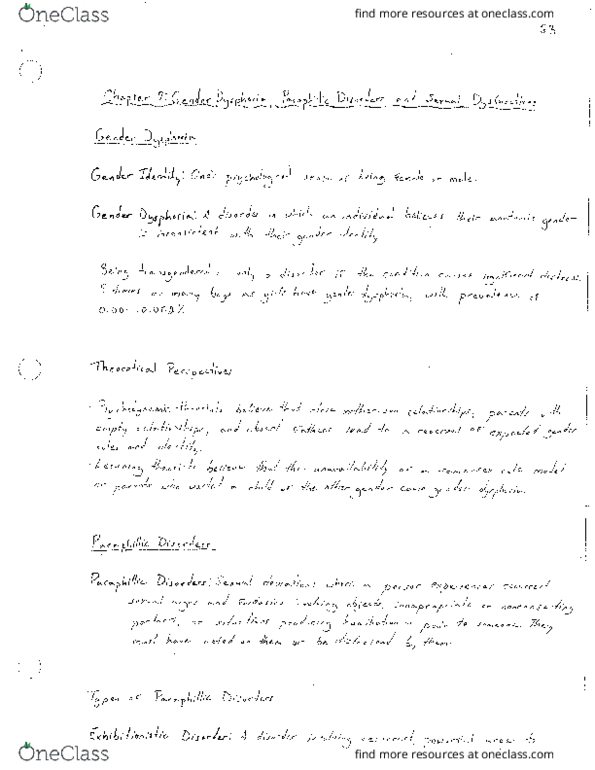 OneClass
find more resources at oneclass.com
53
Chapter 9: Gender Dysphoria, Paraphilic Disorders and Sexual Dysfunctions
Gender Dysphoria
Gender Identity: One's psychological sense of being female or male.
Gender Dysphoria: A disorder in which an individual believes their anatomic gender
is inconsistent with their gender identity
Being transgendered is only a disorder if the condition causes significant distress.
5 times as many boys as girls have gender dysphoria, with prevalence of
Theoretical Perspectives
· Psychodynamic theorists believe that close mother-son relationships, parents with
empty relationships, and absent fathers lead to a reversal of expected gender
roles and identity.
· Learning theorists believe that the unavailability of a role model
or parents who wanted a child of the other gender cause gender dysphoria.
Paraphillic Disorders
Paraphillic Disorders: Sexual deviations where a person experiences recurrent
sexual urges and fantasies involving objects, inappropriate or nonconsenting
partners, or situations producing humiliation or pain to someone. They
must have acted on them or be distressed by them.
Types of Paraphillic Disorders
Exhibitionistic Disorder: A disorder involving recurrent, powerful urges to
OneClass
find more resources at oneclass.com